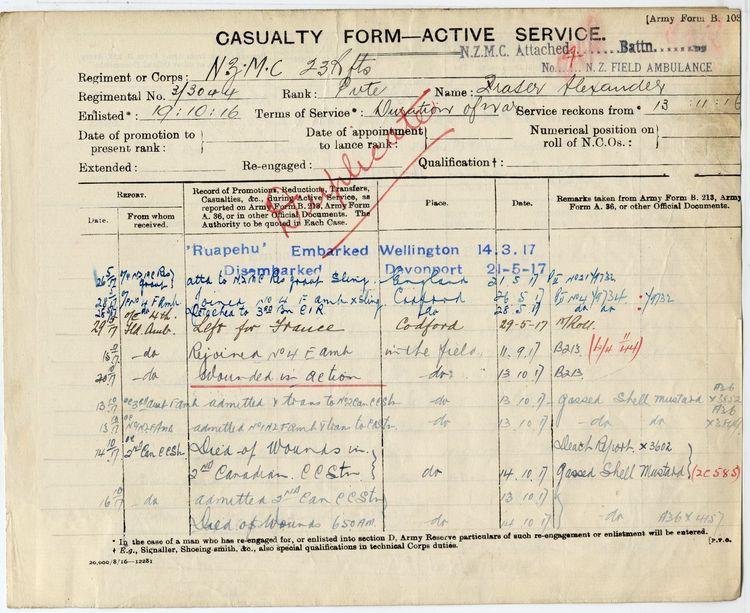 [Army Form B. 103
CASUALTY FORM—ACTIVE SERVICE.
N.Z.M.C. Attached Battn.
No. 4 N.Z. FIELD AMBULANCE
Regiment or Corps: N.Z.M.C 23 Rfts
Regimental No. 3/3044 Rank: Pvte Name: Fraser Alexander
Enlisted*: 19:10:16 Terms of Service*: Duration of war Service reckons from* 13 :11:16
Date of promotion to present rank: Date of appointment to lance rank: Numerical position on roll of N.C.Os.:
Extended: Re-engaged: Qualification†:
Duplicate
REPORT. Record of Promotions, Reductions, Transfers, Casualties, &c., during Active Service, as reported on Army Form B. 213, Army Form A. 36, or in other Official Documents. The Authority to be quoted in Each Case. Place. Date. Remarks taken from Army Form B. 213, Army Form A. 36, or other Official Documents.
Date. From whom received.
'Ruapehu' Embarked Wellington 14.3.17
Disembarked Devonport 21-5-17
attd to NZMC Sling England 21.5.17
Joined No 4 F amb Codford 26 5 17
Detached to 3rd do 28.5.17 do do
29 O/C 4th Fld. Amb. Left for France Codford 29-5-17 M/Roll.
do Rejoined No 4 F amb in the field 11.9.17 B213
do Wounded in action do 13 10 17 B213
13 admitted & trans to No 2 Can CC Stn do 13 10 17 Gassed Shell mustard A36
13 admitted do 13.10.17 do do A36
14 2nd Can CC Stn Died of Wounds in 2nd Canadian. CC Stn do 14.10.17 Death Report x3602 Gassed Shell Mustard (2C585)
16 do admitted 2nd Can CC Stn 13 10 17
Died of Wounds 6 50 AM. do 14 10 17 do A36
* In the case of a man who has re-engaged for, or enlisted into section D, Army Reserve particulars of such re-engagement or enlistment will be entered.
† E.g., Signaller, Shoeing-smith, &c., also special qualifications in technical Corps duties. [P.T.O.
20,000/8/16—12281